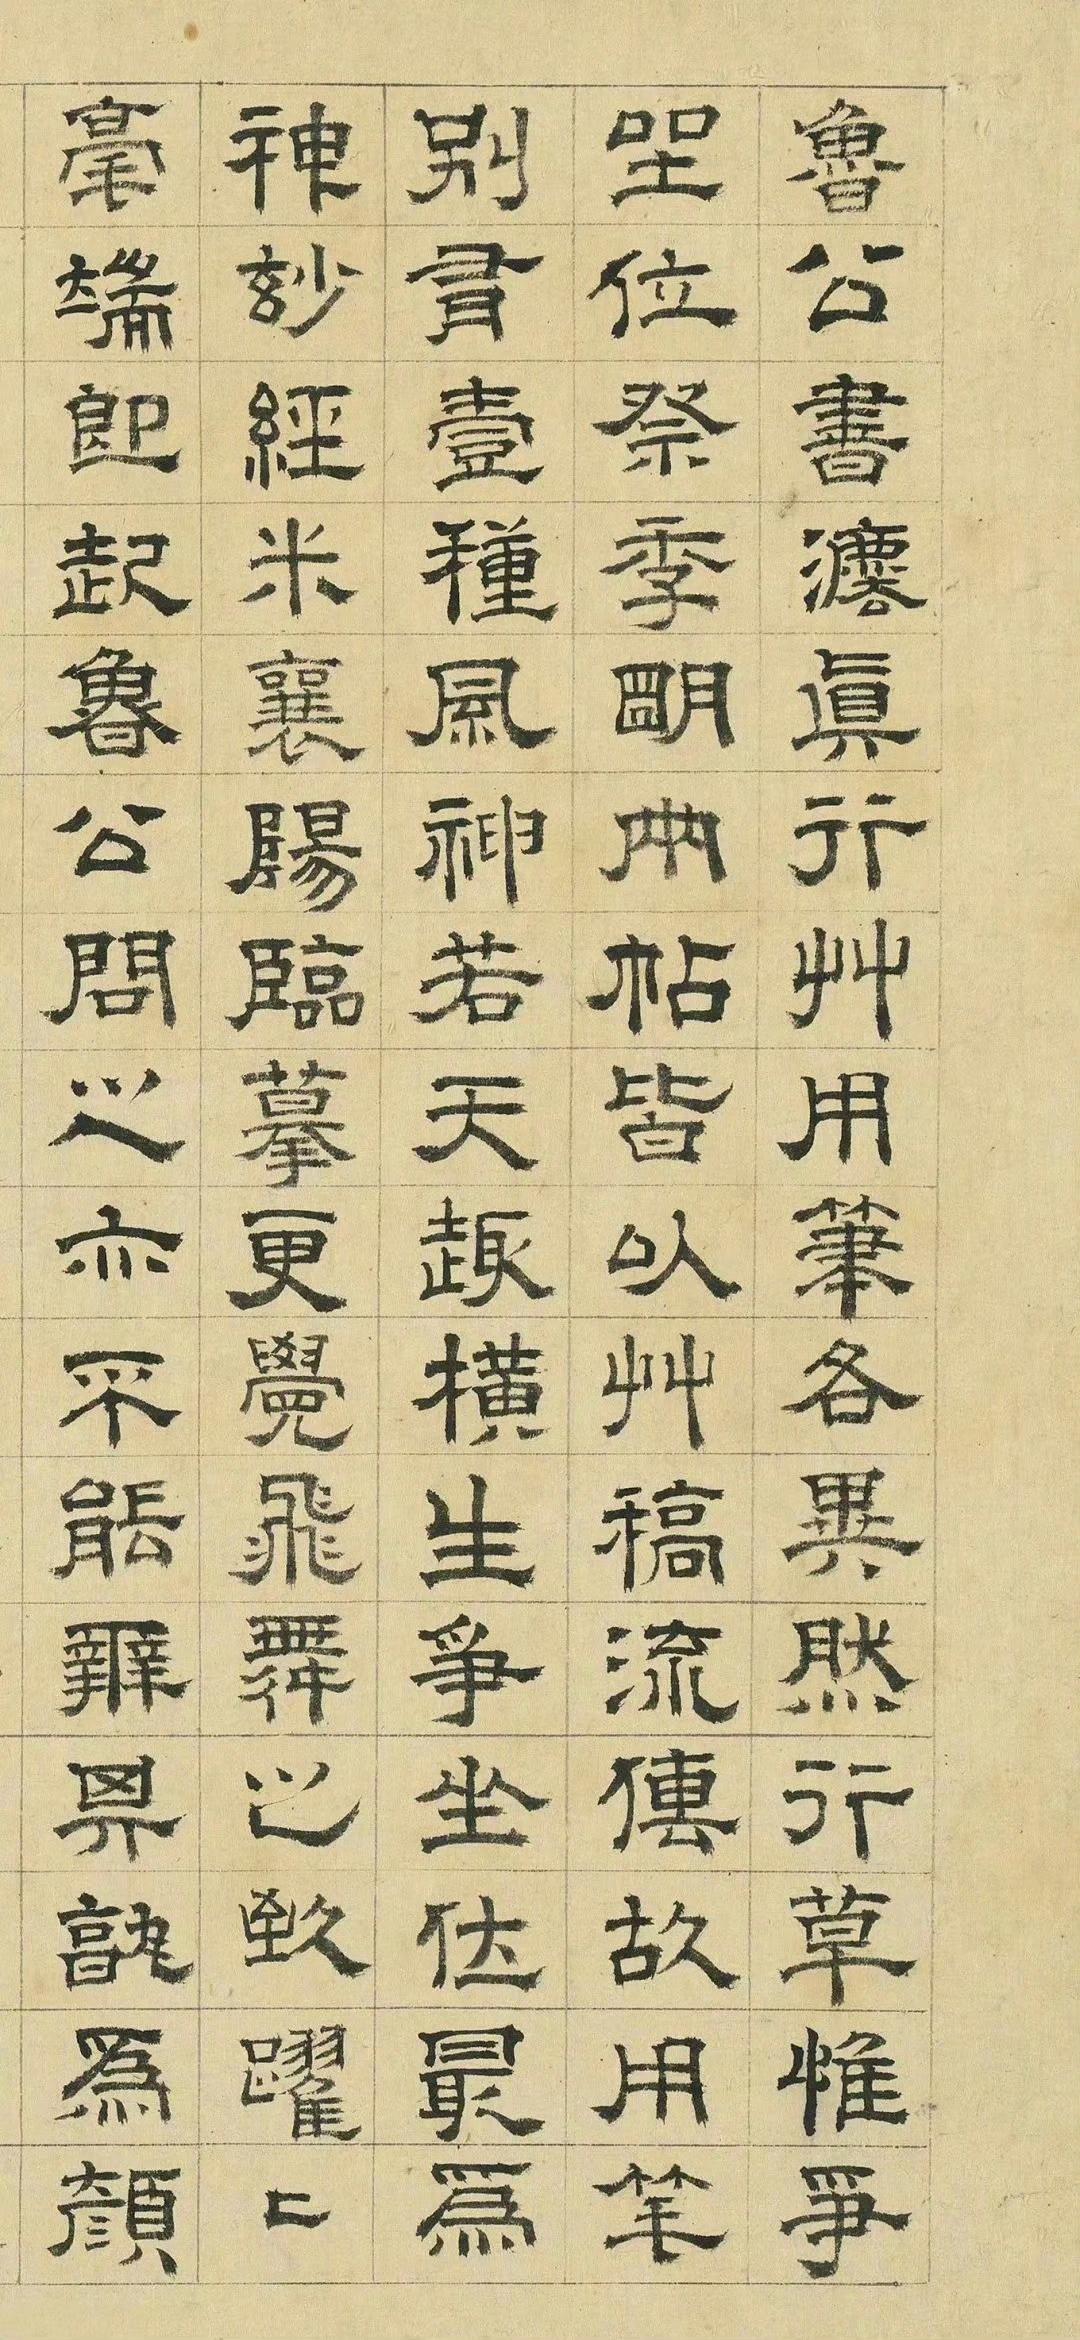 魯公書灋眞行艸用筆各異然行草惟爭
坐位祭季明兩帖皆以艸稿流傳故用笔
別有壹種風神若天趣橫生爭坐位最爲
神妙經米襄陽臨摹更覺飛舞之致躍〻
毫端即起魯公問之亦不能辨其孰爲顏